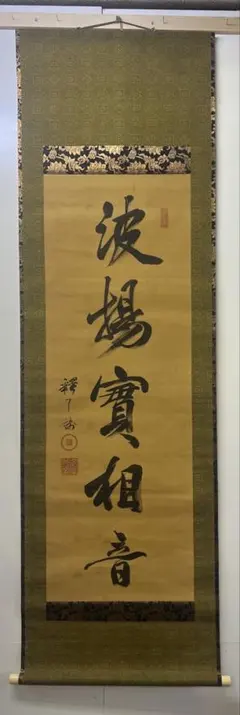 波揚實相音
釋了